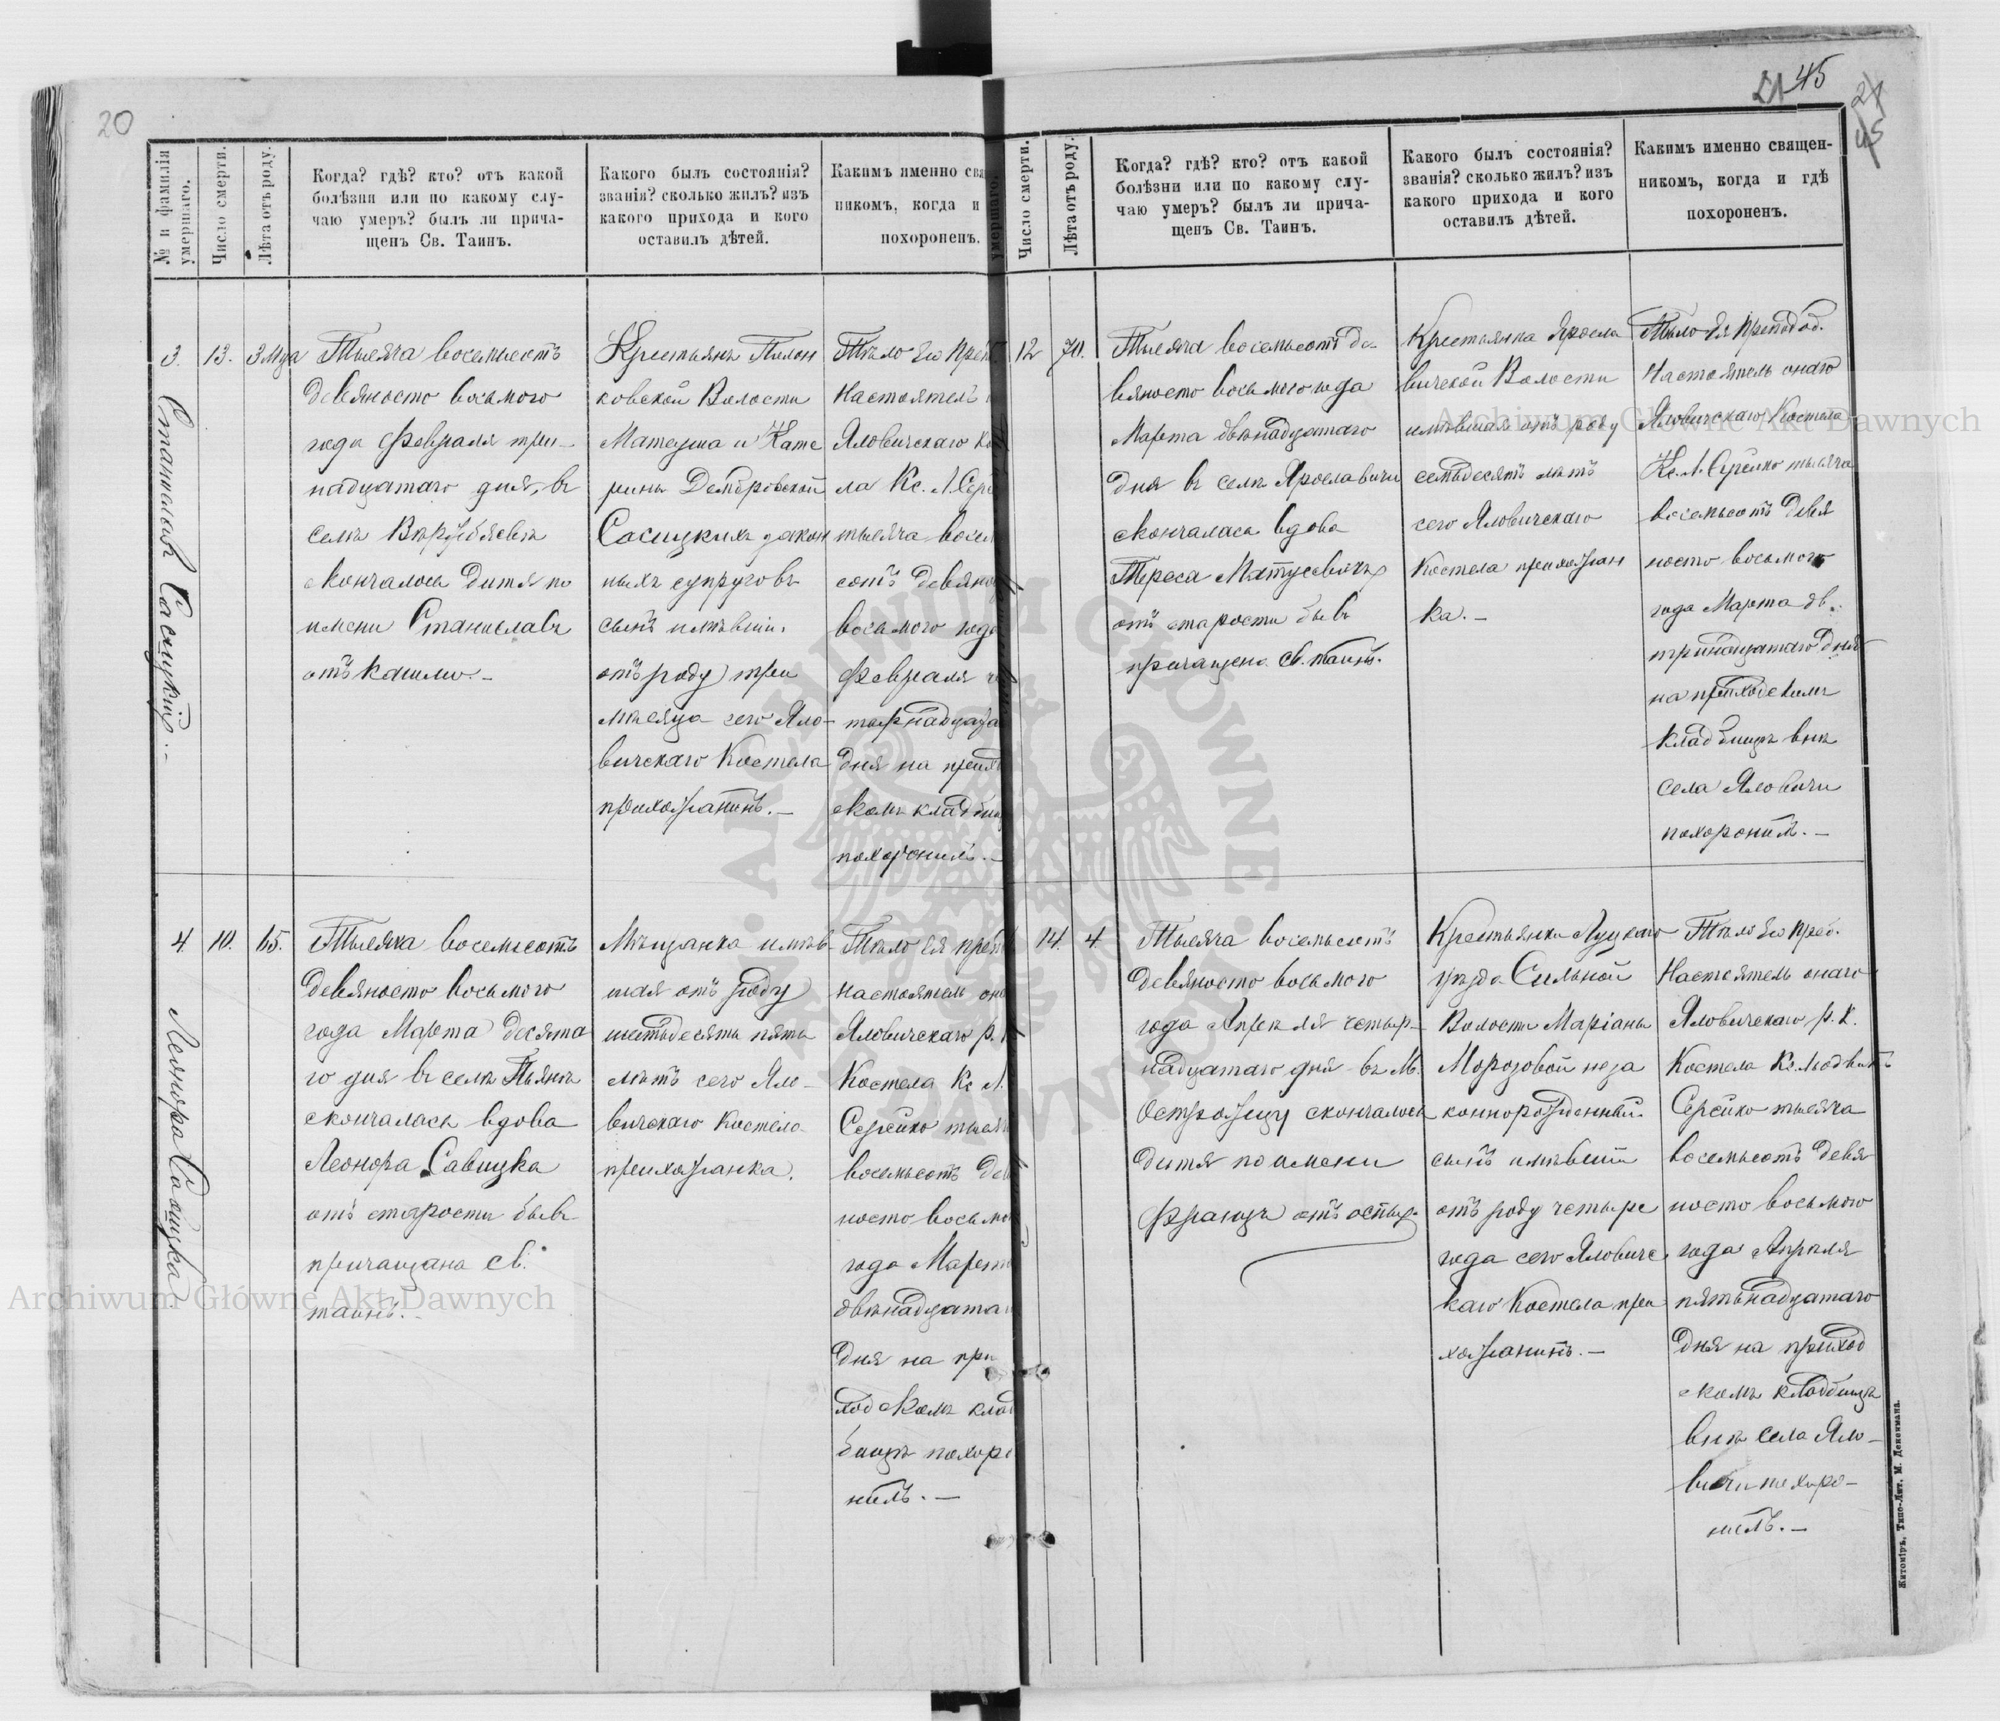 20
№ и фамилія умершаго.
Число смерти.
Лѣта отъ роду.
Когда? гдѣ? кто? отъ какой
болѣзни или по какому слу-
чаю умеръ? былъ ли прича-
щенъ Св. Таинъ.
Какого былъ состоянія?
званія? сколько жилъ? изъ
какого прихода и кого
оставилъ дѣтей.
Какимъ именно свя
никомъ, когда и
похороненъ.
3.
Станиславъ Сасицкій.
13.
3 м-ца
Тысяча восемьсотъ
девяносто восьмого
года Февраля три-
надцатаго дня, въ
селѣ
скончалось дитя по
имени Станиславъ
отъ кашлю.-
Крестьянъ Полон
ковской Волости
Матеуша и Кате
рины Домбровской
Сасицкихъ закон
ныхъ супруговъ
сынъ имѣвшій
отъ роду три
мѣсяца сего Яло-
вичскаго Костела
прихожанинъ.-
Тѣло Его Преп.
Настоятель
Яловичскаго Кос
ла Кс. Л. Серей
тысяча восем
сотъ девяно
восьмого года
Февраля че
тырнадцата
дня на прихо
скомъ кладбищ
похоронилъ.-
4.
Леонора Савицка
10.
65.
Тысяча восемьсотъ
девяносто восьмого
года Марта десята
го дня въ селѣ Пьянѣ
скончалась вдова
Леонора Савицка
отъ старости бывъ
причащана Св.
таинъ.-
Мѣщанка имѣв-
шая отъ роду
шестьдесятъ пять
лѣтъ сего Яло-
вичскаго Костела
прихожанка.
Тѣло Ея Преп
Настоятель она
Яловичскаго р.
Костела Кс Л.
Серейко тысяч
восемьсотъ дев
носто восьмо
года Марта
двѣнадцата
дня на при
ходскомъ клад
бищѣ похоро
нилъ.-
21 45
21
45
умершаго.
Число смерти.
Лѣта отъ роду.
Когда? гдѣ? кто? отъ какой
болѣзни или по какому слу-
чаю умеръ? былъ ли прича-
щенъ Св. Таинъ.
Какого былъ состоянія?
званія? сколько жилъ? изъ
какого прихода и кого
оставилъ дѣтей.
Какимъ именно священ-
никомъ, когда и гдѣ
похороненъ.
12
70.
Тысяча восемьсотъ де-
вяносто восьмого года
Марта двѣнадцатаго
дня въ селѣ Ярославичи
скончалась вдова
Тереса Матусевичъ
отъ старости бывъ
причащена Св. таинъ.
Крестьянка Яросла
вичской Волости
имѣвшая отъ роду
семьдесятъ лѣтъ
сего Яловичскаго
Костела прихожан
ка.-
Тѣло Ея Преподоб.
Настоятель онаго
Яловичскаго Костела
Кс. Л. Серейко тысяча
восемьсотъ девя
носто восьмого
года Марта
тринадцатаго дня
на приходскомъ
кладбищѣ внѣ
села Яловичи
похоронилъ.-
14.
4
Тысяча восемьсотъ
девяносто восьмого
года Апрѣля четыр-
надцатаго дня въ М.
Острожцу скончалось
дитя по имени
Францъ отъ оспы.
Крестьянки Луцкаго
уѣзда Сильной
Волости Маріаны
Морозовой неза
коннорожденный
сынъ имѣвшій
отъ роду четыре
года сего Яловичс
каго Костела при
хожанинъ.-
Тѣло Его Преп.
Настоятель онаго
Яловичскаго р. к.
Костела Кс. Людвикъ
Серейко тысяча
восемьсотъ девя
носто восьмого
года Апрѣля
пятьнадцатаго
дня на приход
скомъ кладбищѣ
внѣ села Яло-
вичи похоро-
нилъ.-
Житоміръ, Типо-Лит. М. Дененмана.
Archiwum Główne Akt Dawnych
Archiwum Główne Akt Dawnych
ARCHIWUM GŁÓWNE AKT DAWNYCH